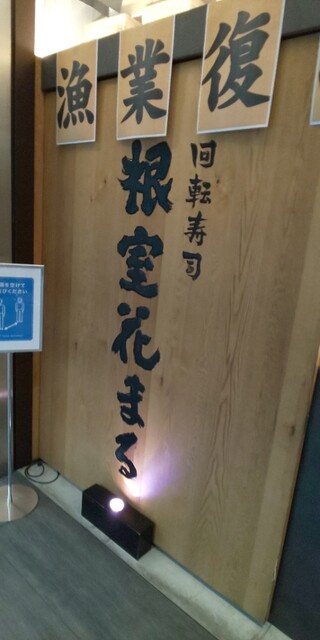 漁業復
回転寿司
根室花まる
間を空けて
びください